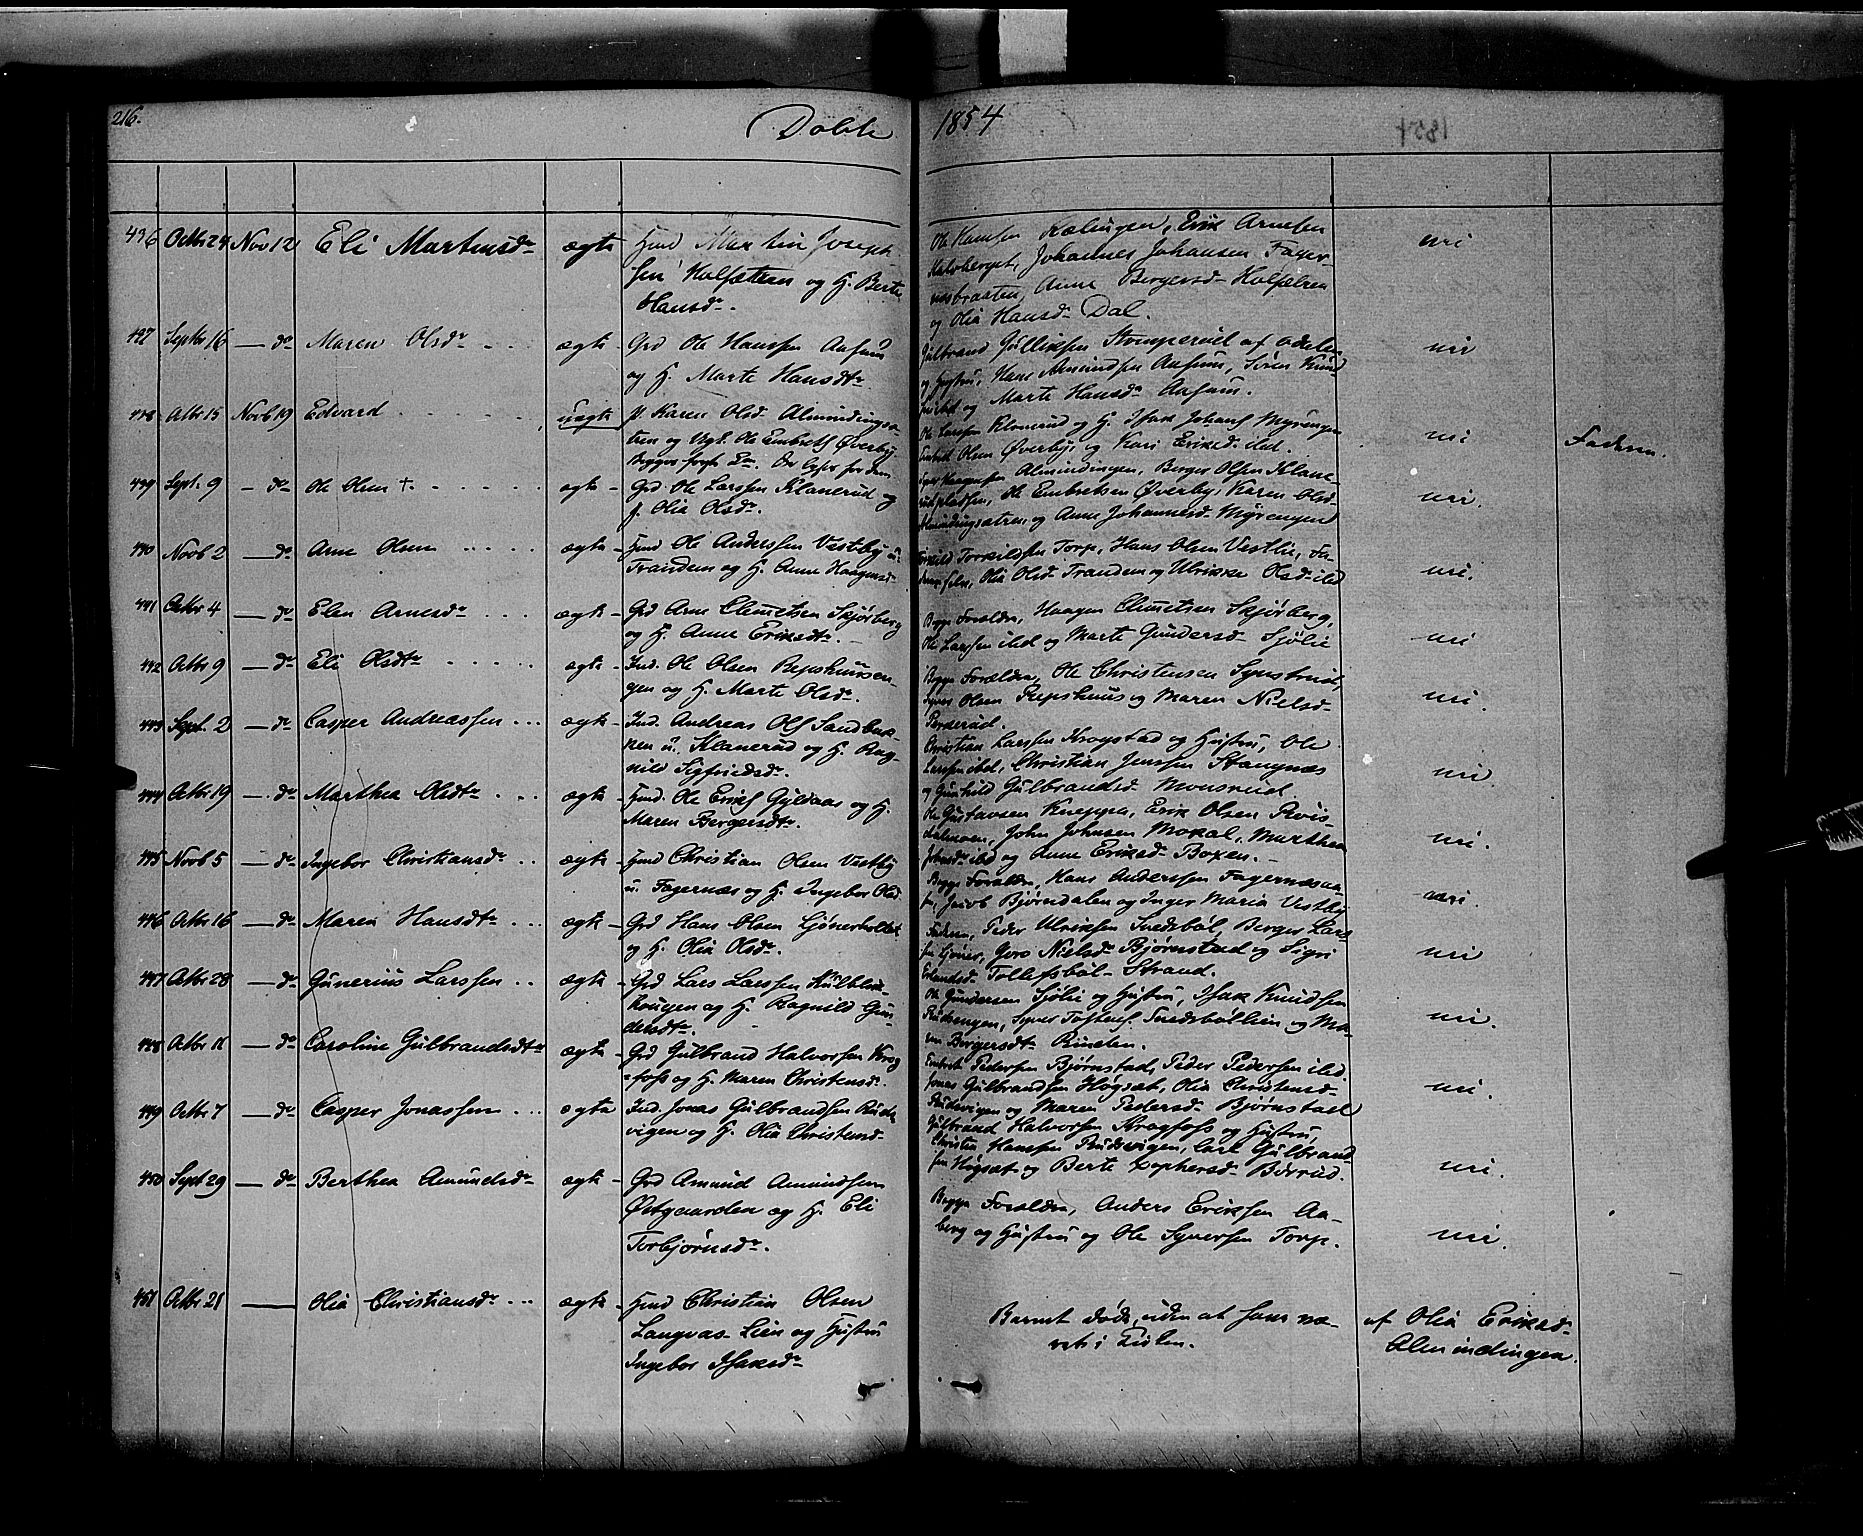 216. Døbte 1854
436 Octbr 24 Nov 12 Eli Martensdr ægte Hmd Martin Joseph-
sen Kolsætren og H. Berte
Hansdr.
Ole Hansen Kølingen, Erik Arnesen
Kalvberget, Johannes Johansen Fager-
næsbraaten, Anne Bergersd Kolsætren
og Olia Hansdr Dal.
uri
437 Septbr 16 — do Maren Olsdr ægte Grd Ole Hanssen Aasum
og H. Marte Hansdtr
Gulbrand Gulliksen Stomperud af Odalen
og Hustru, Hans Amundsen Aasum, Søren Knud
og Marte Hansdr Aasum.
uri
438 Octbr 15 Novb 19 Edvard uægte P. Karen Olsd Almindingsæ-
tren og Ugk. Ole Embretsn Øverby.
Begges første L. for dem
Ole Larssen Klanerud og H. Isak Johans Myrengen
Embret Olsen Øverby, og Kari Eriksd. ibd.
uri Faderen.
439 Sept. 9 — do Ole Olsen + ægte Grd. Ole Larssen Klanerud og
H. Olia Olsdr.
Syver Haagensen Almindingen, Berger Olsen Klane-
rudpladsen, Ole Embretsen Øverby, Karen Olsd
Almindingsætren og Anne Johannesd Myrengen
uri.
440 Novb 2 — do Arne Olsen ægte Hmd Ole Anderssen Vestby u.
Trandem og H. Anne Haagensd
Torkild Torkildsen Torp, Hans Olsen Vestlie, Fa-
deren selv, Olia Olsd Trandem og Ulrikke Olsd ibd
uri.
441 Octbr 4 — do Elen Arnesdr ægte Grd Arne Clemetsen Skjørberg
og H. Anne Eriksdtr.
Begge Forældre, Haagen Clemetsen Skjørberg,
Ole Larssen ibd og Marte Gundersd Sjølie
uri
442 Octbr 9 — do Eli Olsdtr ægte Ind. Ole Olsen Repshuusen-
gen og H. Marte Olsdr.
Begge Forældre, Ole Christensen Synstrud,
Syver Olsen Repshuus og Maren Nielsd
Perkerud.
uri.
443 Sept. 2 — do Casper Andreassen ægte Ind. Andreas Ols Sandbak-
ken u. Klanerud og H. Rag-
nild Sigfriedsdr.
Christian Larssen Krogstad og Hustru, Ole
Larssen ibd, Christian Jenssen Stangnæs
og Gunhild Gulbrandsd Monsrud.
uri
444 Octbr 19 — do Marthea Olsdtr ægte Hmd. Ole Eriks Gyldaas og H.
Maren Bergersdtr.
Ole Gustavsen Kneppe, Erik Olsen Rois-
dalmoen, John Johnsen Mokal, Marthea
Johnsdr ibd og Anne Eriksd Boxen.
uri.
445 Novb 5 — do Ingebor Christiansdr ægte Hmd Christian Olsen Vestby
u. Fagernæs og H. Ingebor Olsd
Begge Forældre, Hans Anderssen Fagernæsaa-
sen, Jacob Bjørndalen og Inger Maria Vestby
uri.
446 Octbr 16 — do Maren Hansdtr ægte Grd Hans Olsen Sjønerholtet
og H. Olia Olsdr.
Faderen, Peder Ulriksen Snedsbøl, Berger Lars-
sen Sjøner, Goro Nielsdr Bjørnstad og Sigri
Erlandsdr Tollefsbøl Strand.
uri
447 Octbr 28 — do Gunerius Larssen ægte Grd Lars Larssen Kulblik-
hougen og H. Ragnild Gun-
dersdtr.
Ole Gundersen Sjølie og Hustru, Isak Knudsen
Rudsengen, Syver Tostens. Snedsbøllien og Ma-
ren Bergersdtr Rinden.
uri.
448 Octbr 11 — do Caroline Gulbrandsdtr ægte Grd Gulbrand Halvorsen Krog-
foss og H. Maren Christensd.
Embret Pedersen Bjørnstad, Peder Pedersen ibd
Jonas Gulbrandsen Høgsæt, Olia Christensd
Rudsvigen og Maren Pedersd Bjørnstad
uri.
449 Octbr 7 — do Casper Jonassen ægte Ind. Jonas Gulbrandsen Ruds-
vigen og H. Olia Christensd
Gulbrand Halvorsen Krogfoss og Hustru,
Christen Hanssen Rudsvigen, Carl Gulbrand-
sen Høgsæt og Berte Zophersdr Børrud.
uri.
450 Sept 29 — do Berthea Amundsdr ægte Grd Amund Amundsen
Østgaarden og H. Eli
Torbjørnsdr.
Begge Forældre, Anders Eriksen Aa-
berg og Hustru og Ole Syversen Torp.
uri.
451 Octbr 21 — Olia Christiansdr ægte Hmd Christian Olsen
Langvas Lien og Hustru
Ingebor Isaksdr
Barnet døde, uden at have væ-
ret i Kirken.
af Olia Eriksd
Almindingen.